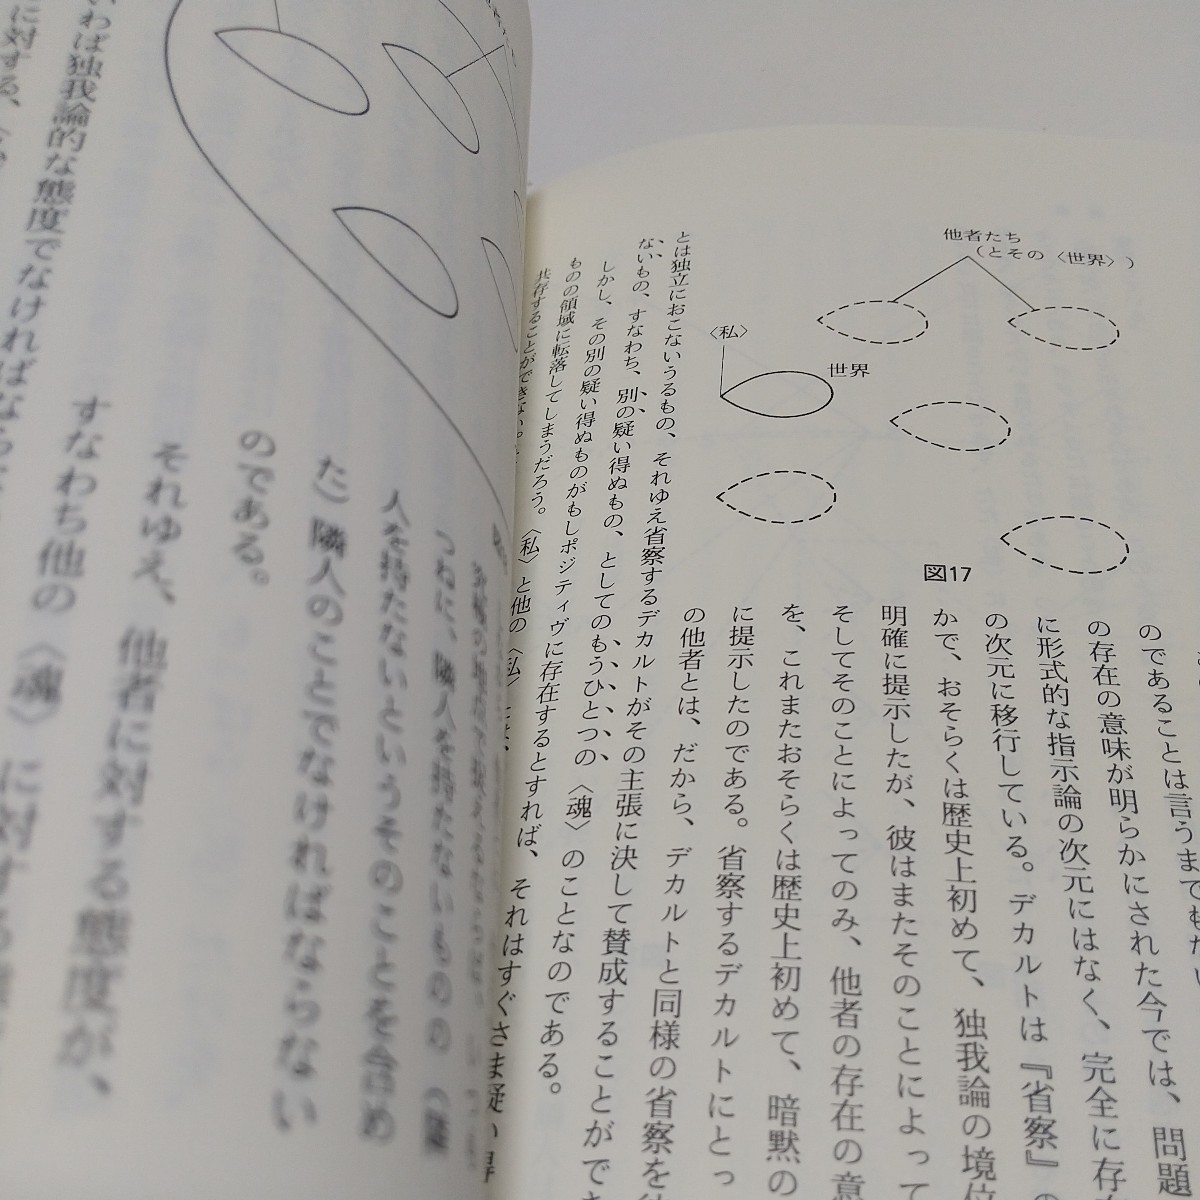 他者たち
（とその〈世界〉）
〈私〉
世界
図17
のであることは言うまでもない
の存在の意味が明らかにされた今では、問題
に形式的な指示論の次元にはなく、完全に存
の次元に移行している。デカルトは『省察』の
かで、おそらくは歴史上初めて、独我論の境位
明確に提示したが、彼はまたそのことによって
そしてそのことによってのみ、他者の存在の意
を、これまたおそらくは歴史上初めて、暗黙の
に提示したのである。省察するデカルトにとっ
の他者とは、だから、デカルトと同様の省察を
とは独立におこないうるもの、それゆえ省察するデカルトがその主張に決して賛成することができ
ないもの、すなわち、別の疑い得ぬもの、としてのもうひとつの〈魂〉のことなのである。
しかし、その別の疑い得ぬものがもしポジティヴに存在するとすれば、それはすぐさま疑い得
ものの領域に転落してしまうだろう。〈私〉と他の〈私〉とは、
共存することができない。
つねに、隣人を持たないものの〈隣
人を持たないというそのことを含め
た）隣人のことでなければならない
のである。
それゆえ、他者に対する態度が、
すなわち他の〈魂〉に対する態
いわば独我論的な態度でなければなら
に対する、